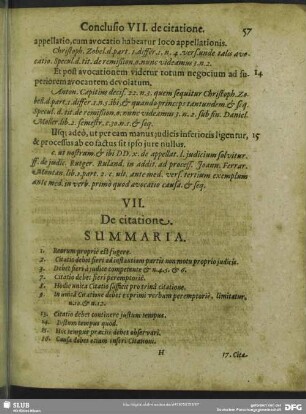 Conclusio VII. de citatione. 57
appellatio, cum avocatio habeatur loco appellationis.
Christoph. Zobel d. part. 1. differ.
Specul. d. tit. de remission. n. nunc videamus 5. n. 2.
Et post avocationem videtur totum negocium ad su- 14
periorem avocantem devolutum.
Anton. Capitius decis. 22. n. 3. quem sequitur Christoph. Zo-
bel d. part. 3. differ.
Specul. d. tit. de remission. n. nunc videamus 5. n. 2. sub fin. Daniel.
Moller lib. 2. semestr. c. 30. n. 2. & seq.
Usq; adeò, ut per eam manus judicis inferioris ligentur, 15
& processus ab eo factus sit ipso jure nullus.
c. ut nostrum, & ibi DD. x. de appellat. l. judicium solvitur.
ff. de judic. Rutger. Ruland. in addit. ad process. Joann. Ferrar.
Montan. lib. 2. part. 2. c. ult. ante med. vers. tertium exemplum
ante med. in verb. primò quod avocatio causæ. & seq.
VII.
De citatione.
SUMMARIA.
1. Reorum proprie est fugere.
2. Citatio debet fieri ad instantiam partis non motu proprio judicis.
3. Debet fieri à judice competente & n. 4. 5. & 6.
7. Citatio debet fieri peremptoriè.
8. Hodie unica Citatio sufficit pro trina citatione.
9. In unica Citatione debet exprimi verbum peremptoriè, limitatur,
n. 10. & 12.
13. Citatio debet continere justum tempus.
14. Iustum tempus quod.
15. Hoc tempus præcisè debet observari.
16. Causa debet etiam inseri Citationi.
H 17. Cita-